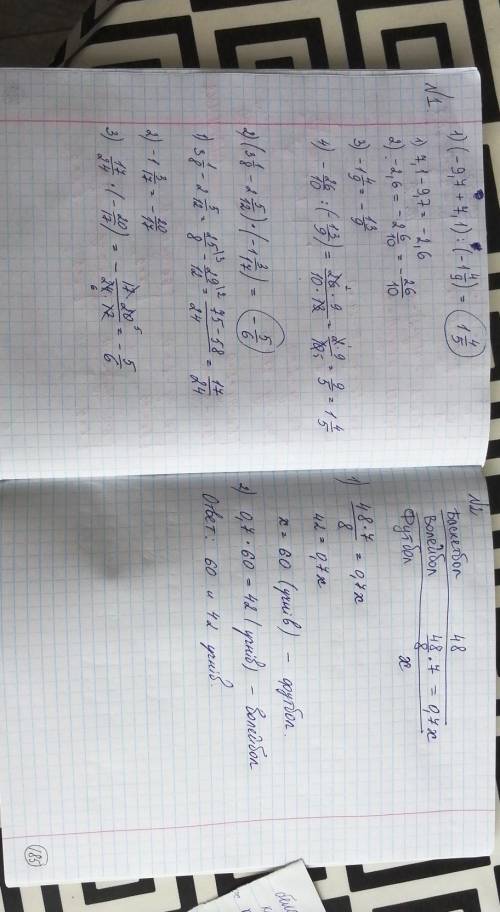 N1.
1) (-9,7 + 7,1) : (-1 4/9) = 1 4/5
1) 7,1 - 9,7 = -2,6
2) -2,6 = -2 6/10 = -26/10
3) -1 4/9 = -13/9
4) -26/10 : (-13/9) = 26·9/10·13 = 2·9/10 = 9/5 = 1 4/5
2) (3 1/8 - 2 5/12) · (-1 3/17) = -5/6
1) 3 1/8 - 2 5/12 = 25/8 - 29/12 = 75-58/24 = 17/24
2) -1 3/17 = -20/17
3) 17/24 · (-20/17) = -17·20/24·17 = -5/6
N2
Баскетбол 48
Волейбол 48/8 · 7 = 0,7x
Футбол x
1) 48·7/8 = 0,7x
42 = 0,7x
x = 60 (учнів) – футбол.
2) 0,7 · 60 = 42 (учнів) – волейбол
Ответ: 60 и 42 учнів.
185